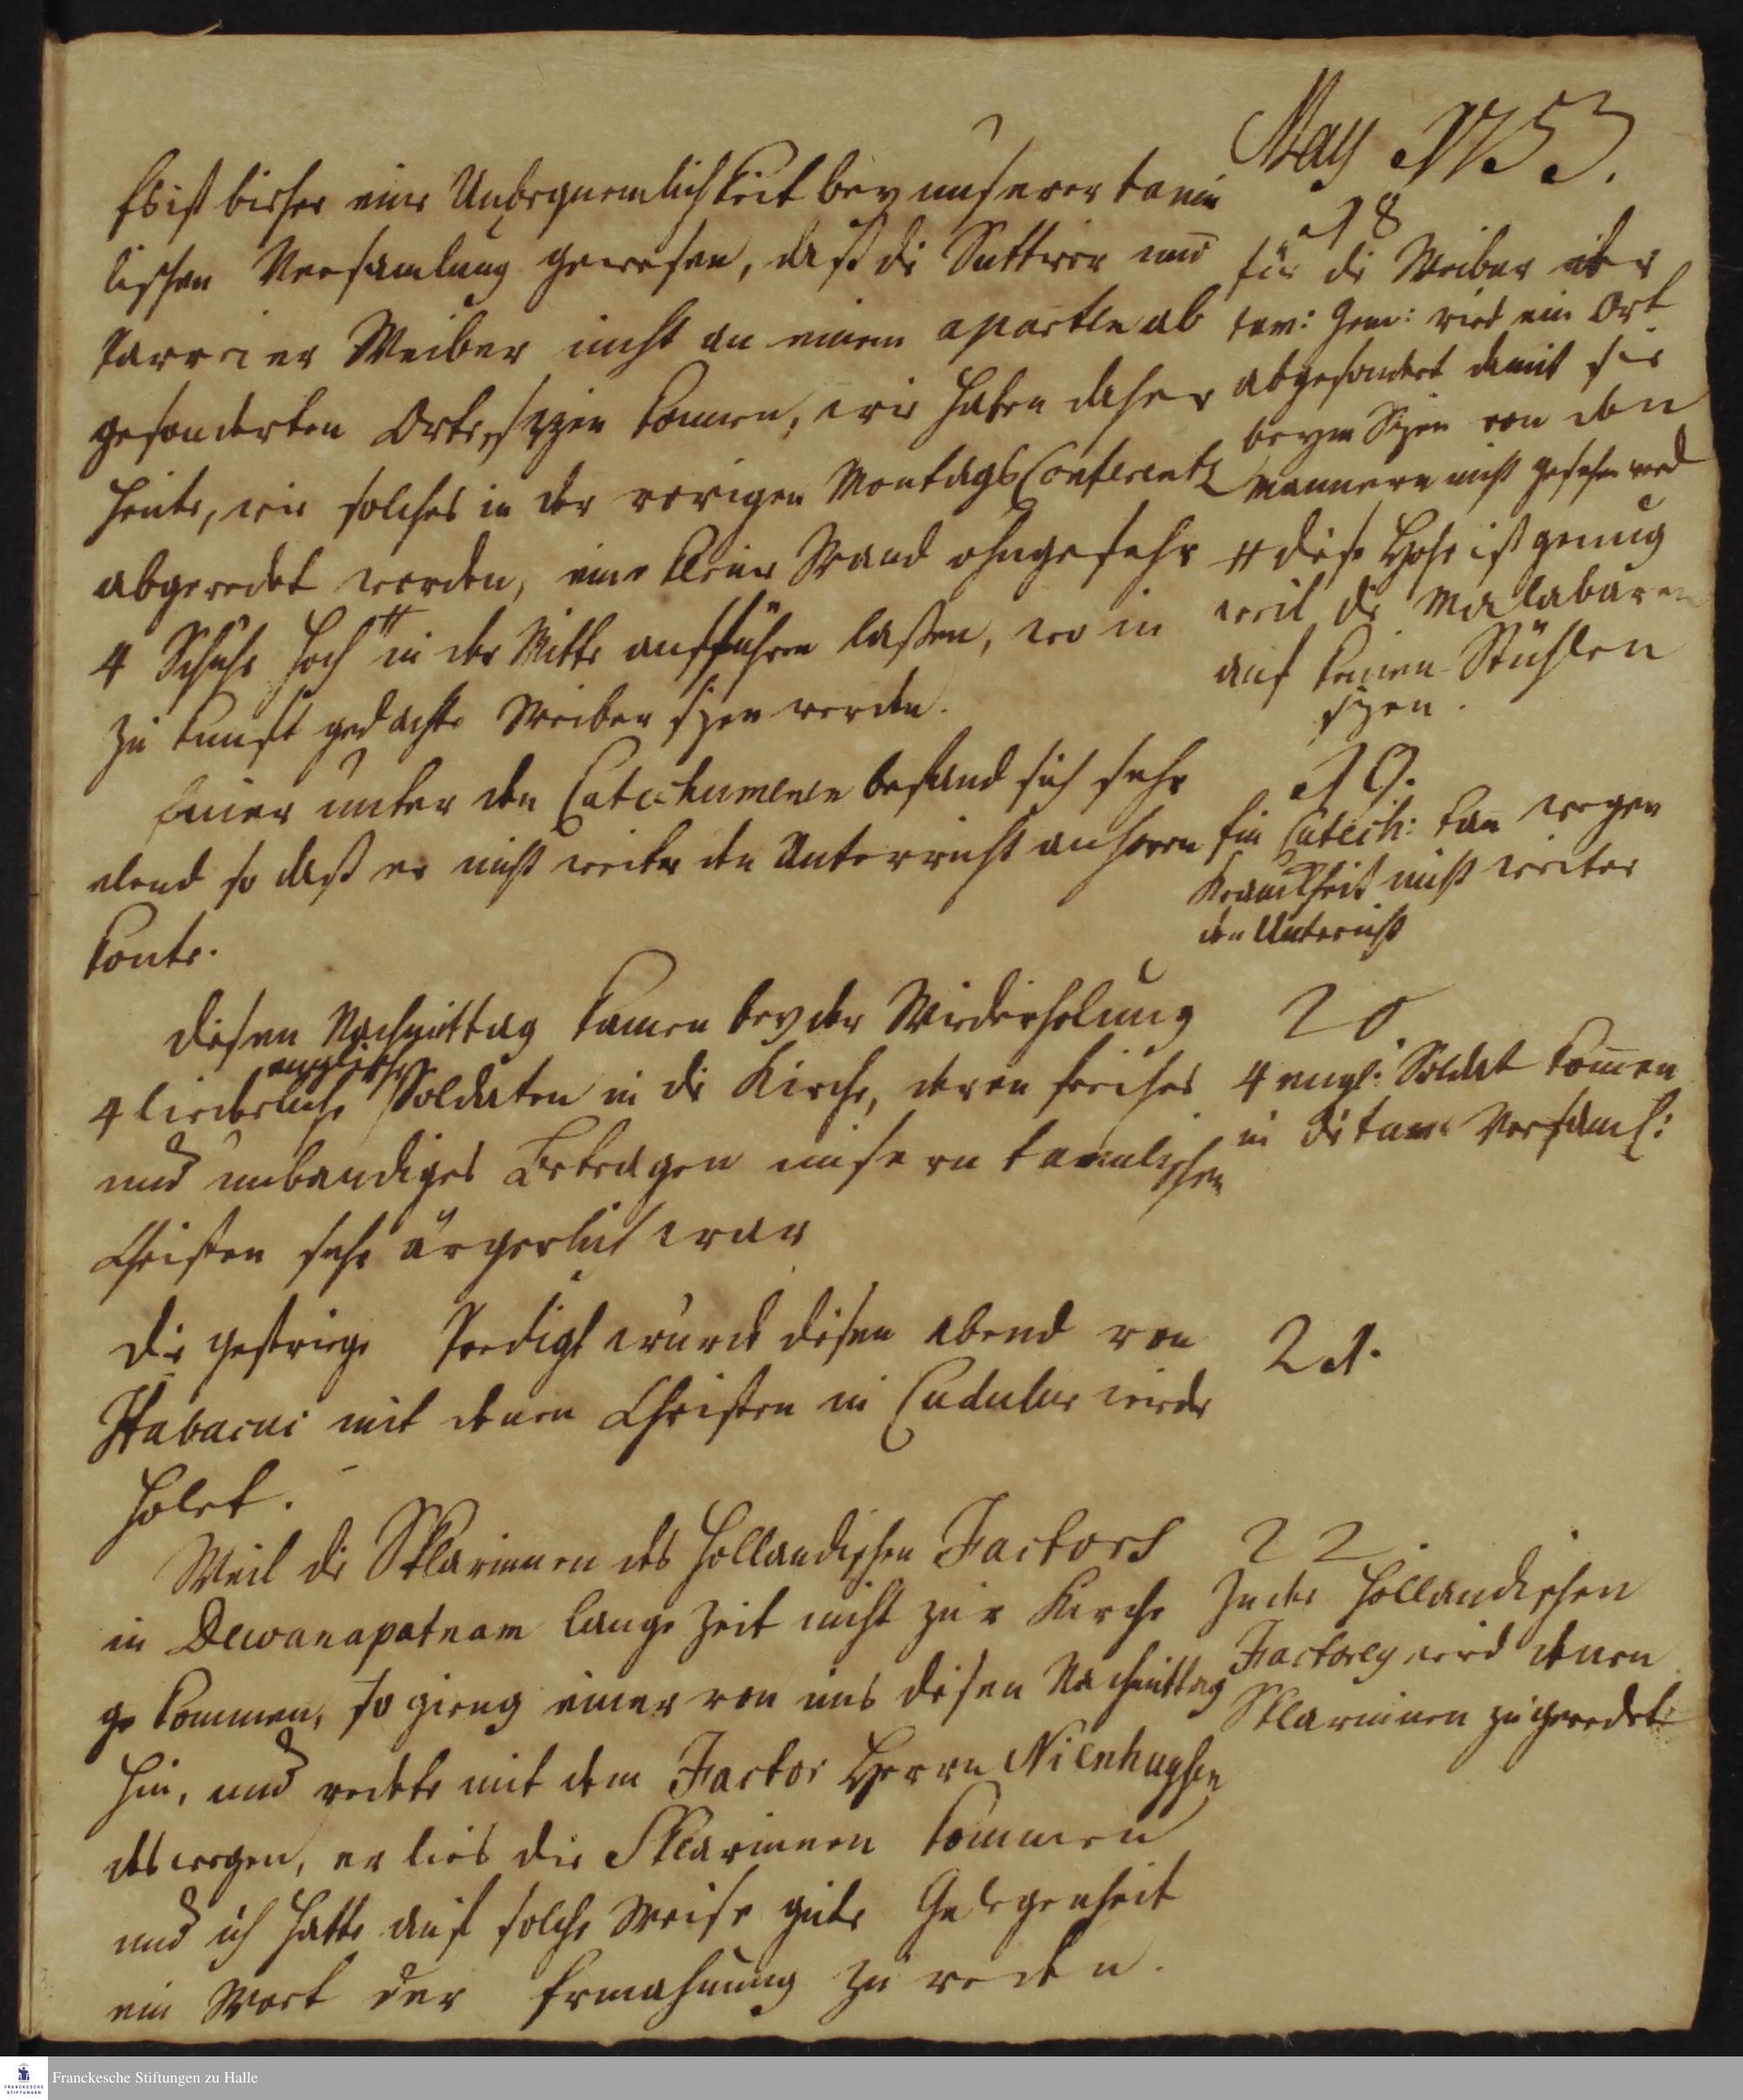 May 1753.
Es ist bisher eine Unbequemlichkeit bey unserer tamu
lischen Versamlung gewesen, daß die Suttirer und
Parreier Weiber nicht an einem aparten ab
gesonderten Orte sizzen können, wir haben daher
heute, wie solches in der vorigen Montags Conferentz
abgeredet worden, eine kleine Wand ohngefehr
4 Schuhe hoch # in der Mitte aufführen laßen, wo in
zu kunft gedachte Weiber sizen werden.
18
für die Weiber der
tam: Gem: wird ein Ort
abgesondert damit sie
beym Sizen von den
Mannern nicht gesehen werd
# diese Hohe ist genug
weil die Malabaren
auf keinen Stühlen
sizen.
Einer unter den Catechumenen befand sich sehr
elend so daß er nicht weiter den Unterricht anhören
konte.
19.
Ein Catech: kan wegen
Krankheit nicht weiter
den Unterricht
Diesen Nachmittag kamen bey der Wiederholung
4 liederliche englische Soldaten in die Kirche, deren freches
und unbandiges Betragen unsern tamulischen
Christen sehr ärgerlich war
20
4 engl: Soldat komen
in die tam: Versaml:
Die gestrige Predigt wurde diesen Abend von
Habacuc mit denen Christen in Cudulur wieder
holet.
21.
Weil die Sklavinnen des Hollandischen Factors
in Dewanapatnam lange Zeit nicht zur Kirche
gekommen, so gieng einer von uns diesen Nachmittag
hin, und redete mit dem Factor Herrn Nienhuysen
deswegen, er lies die Sklavinnen kommen
und ich hatte auf solche Weise gute Gelegenheit
ein Wort der Ermahnung zu reden.
22.
In der Hollandischen
Factorey wird denen
Sklavinnen zugeredet
Franckesche Stiftungen zu Halle
FRANCKESCHE
STIFTUNGEN